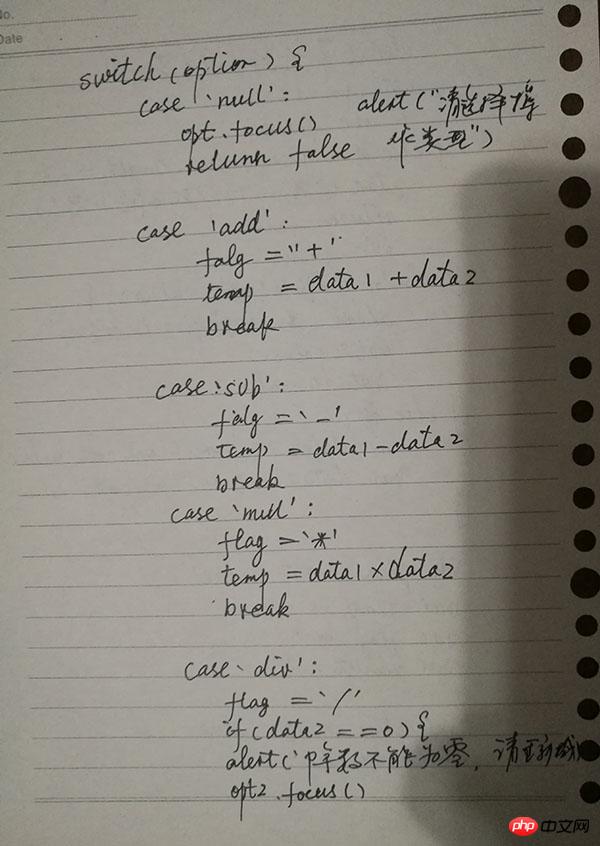 No.
Date
switch(option) {
case 'null': alert("请选择操
opt.focus() 作类型")
return false
case 'add':
falg = "+"
temp = data1 + data2
break
case 'sub':
falg = '-'
temp = data1 - data2
break
case 'mul':
flag = '*'
temp = data1 × data2
break
case 'div':
flag = '/'
if (data2 == 0) {
alert('除数不能为零,请重新
opt2.focus()
php 中文网